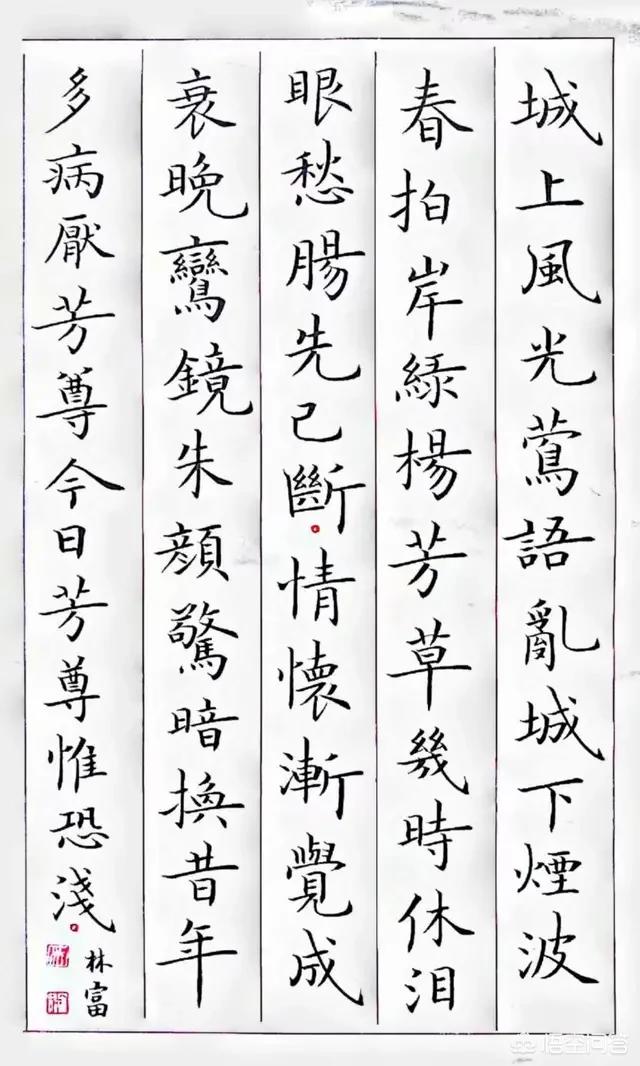 城上風光鶯語亂城下煙波
春拍岸綠楊芳草幾時休泪
眼愁腸先已斷。情懷漸覺成
衰晚鸞鏡朱顏驚暗換昔年
多病厭芳尊今日芳尊惟恐淺。
林富
悟空问答